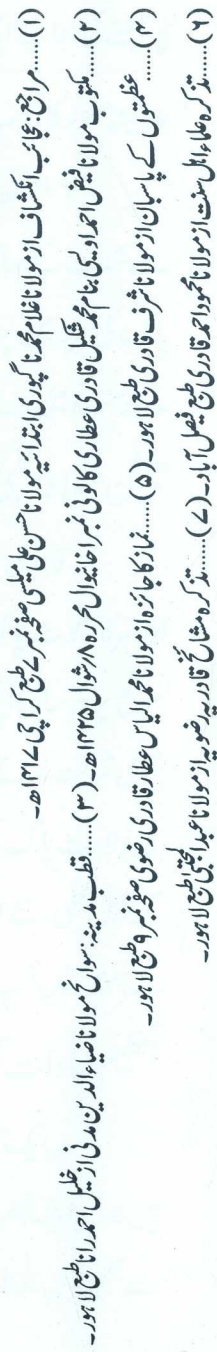 (۱)......مراجع: عجائب انکشاف از مولانا غلام محمد ناگپوری ابتدائیہ مولانا حسن علی میلسی صفحہ نمبر ۷ طبع کراچی ۱۴۱۷ھ۔
(۲)......مکتوب مولانا فیض احمد اویسی بنام محمد شکیل قادری عطاری کالونی نمبر ا خانیوال محررہ ۸ شوال ۱۴۲۵ھ۔ (۳)......قطب مدینہ: سوانح مولانا ضیاء الدین مدنی از خلیل احمد رانا طبع لاہور۔
(۴)......عظمتوں کے پاسبان از مولانا شرف قادری طبع لاہور۔ (۵)......نماز کا جائزہ از مولانا محمد الیاس عطار قادری رضوی صفحہ نمبر ۹ طبع لاہور۔
(۶)......تذکرہ علماء اہل سنت از مولانا محمود احمد قادری طبع فیصل آباد۔ (۷)......تذکرہ مشائخ قادریہ رضویہ از مولانا عبد المجتبیٰ طبع لاہور۔